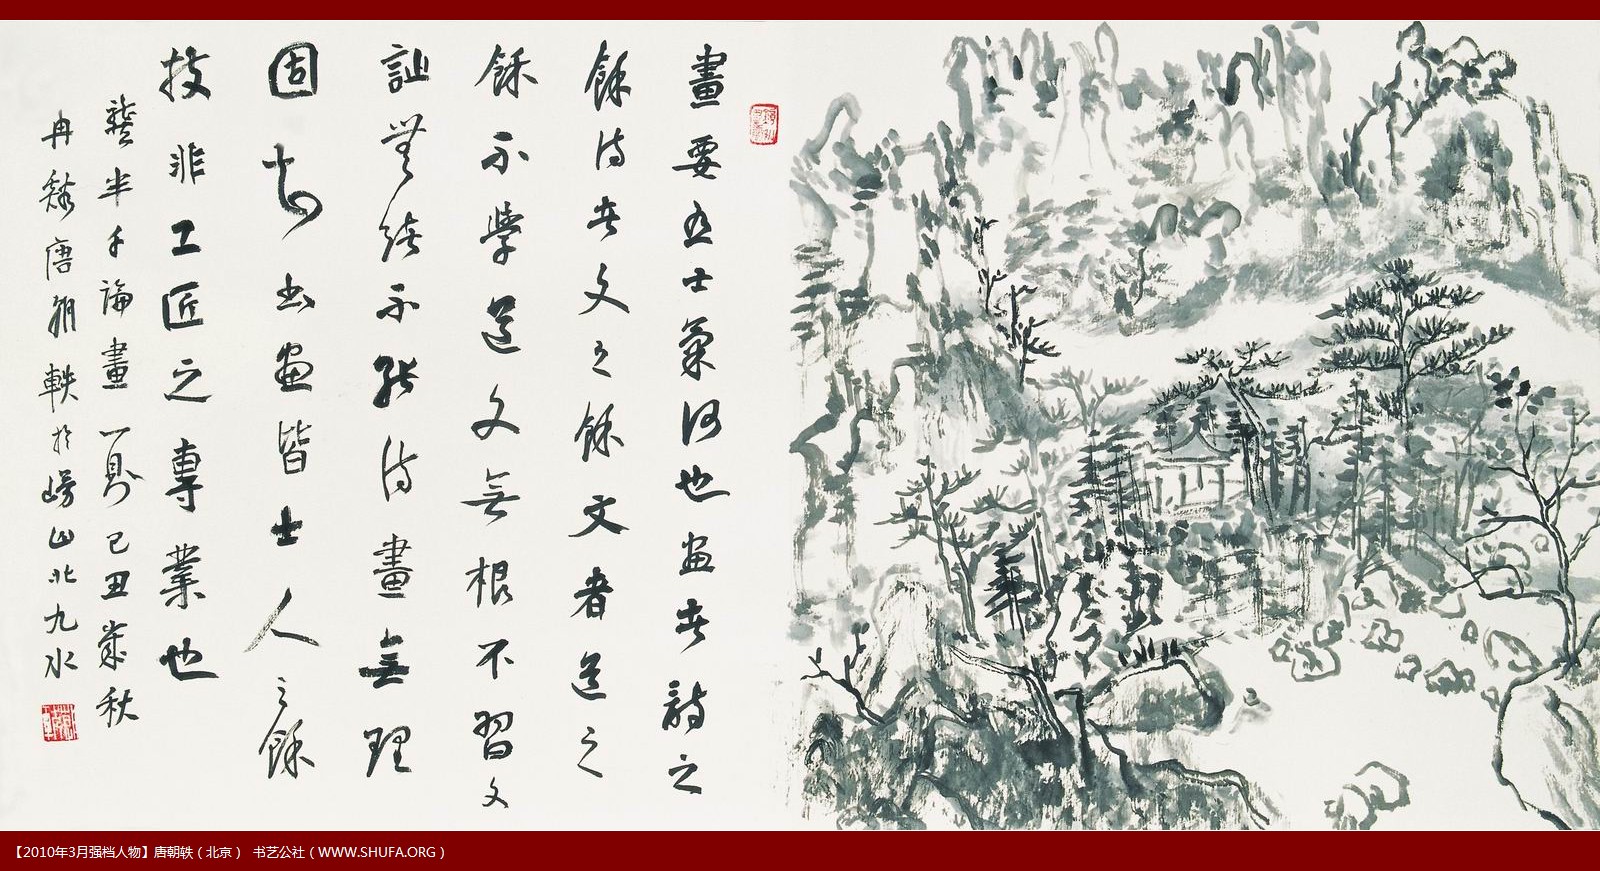 畫要有士氣何也畫者詩之
餘詩者文之餘文者道之
餘不學道文無根不習文
詩無緒不能詩畫無理
固知書畫皆士人之餘
技非工匠之專業也
龔半千論畫一則己丑歲秋
冉溪唐朝軼於嶗山北九水
【2010年3月强档人物】唐朝轶（北京） 书艺公社（WWW.SHUFA.ORG）